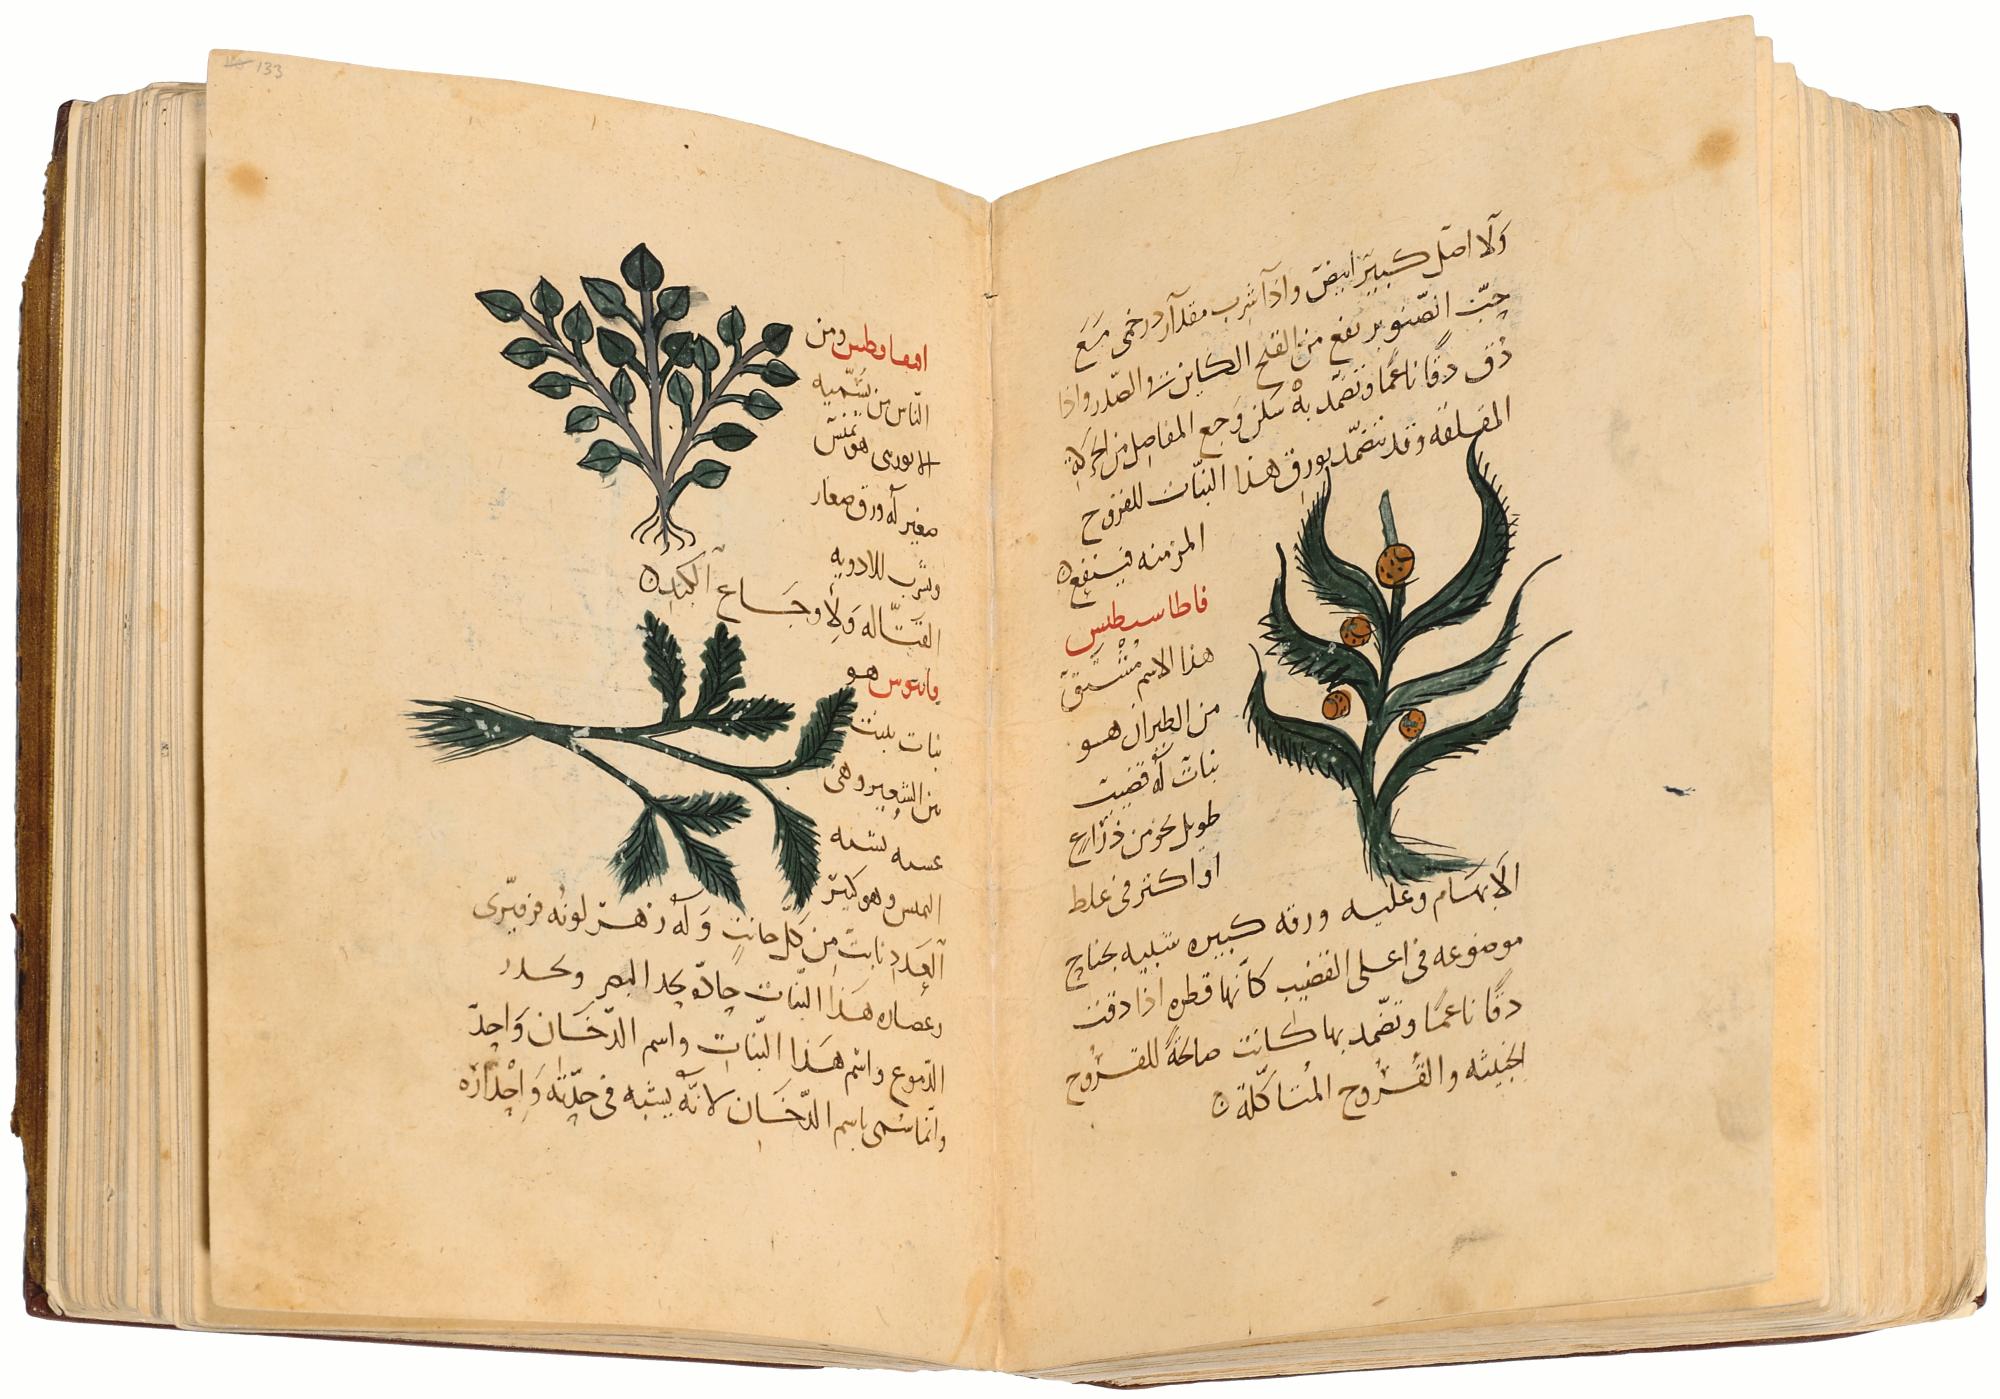 وله اصل كبير ابيض واذا شرب مقدار درخمى مع
حبّ الصّنوبر نفع من القيح الكاين في الصّدر واذا
دُق دقًا ناعمًا وتضمّد به سكن وجع المفاصل من الحركة
المقلقه وقد يتضمّد بورق هذا النبّات للقروح
المزمنه فينتفع
فاطاسيطس
هذا الاسم مُشْتق
من الطيران هو
نبات له قضيب
طويل نحو من ذراع
او اكثر في غلظ
الابهام وعليه ورقه كبيره شبيه بجناح
موضوعه في اعلى القضيب كانّها قطره اذا دقت
دقًا ناعمًا وتضّمد بها كانت صالحةً للقروح
الخبيثه والقُروح المُتاكلّة
133
ومن
النّاس من يسّميه
هو تمنس
صغير له ورق صغار
ويشرب للادويه
القتّاله ولاوجاع الكبد
هو
نبات ينبت
بين الشعير وهى
عسبه يشبه
وهو كبير
العدد نابت من كلّ جانبٍ وله زهر لونه فرفيرى
وعصاره هذا النبّات حادّه يحد البصر ويحدر
الدّموع واسم هذا النبّات واسم الدّخان واحدٌ
وانّما سُمى باسم الدّخان لانّه يشبه في حدّته واحْداره